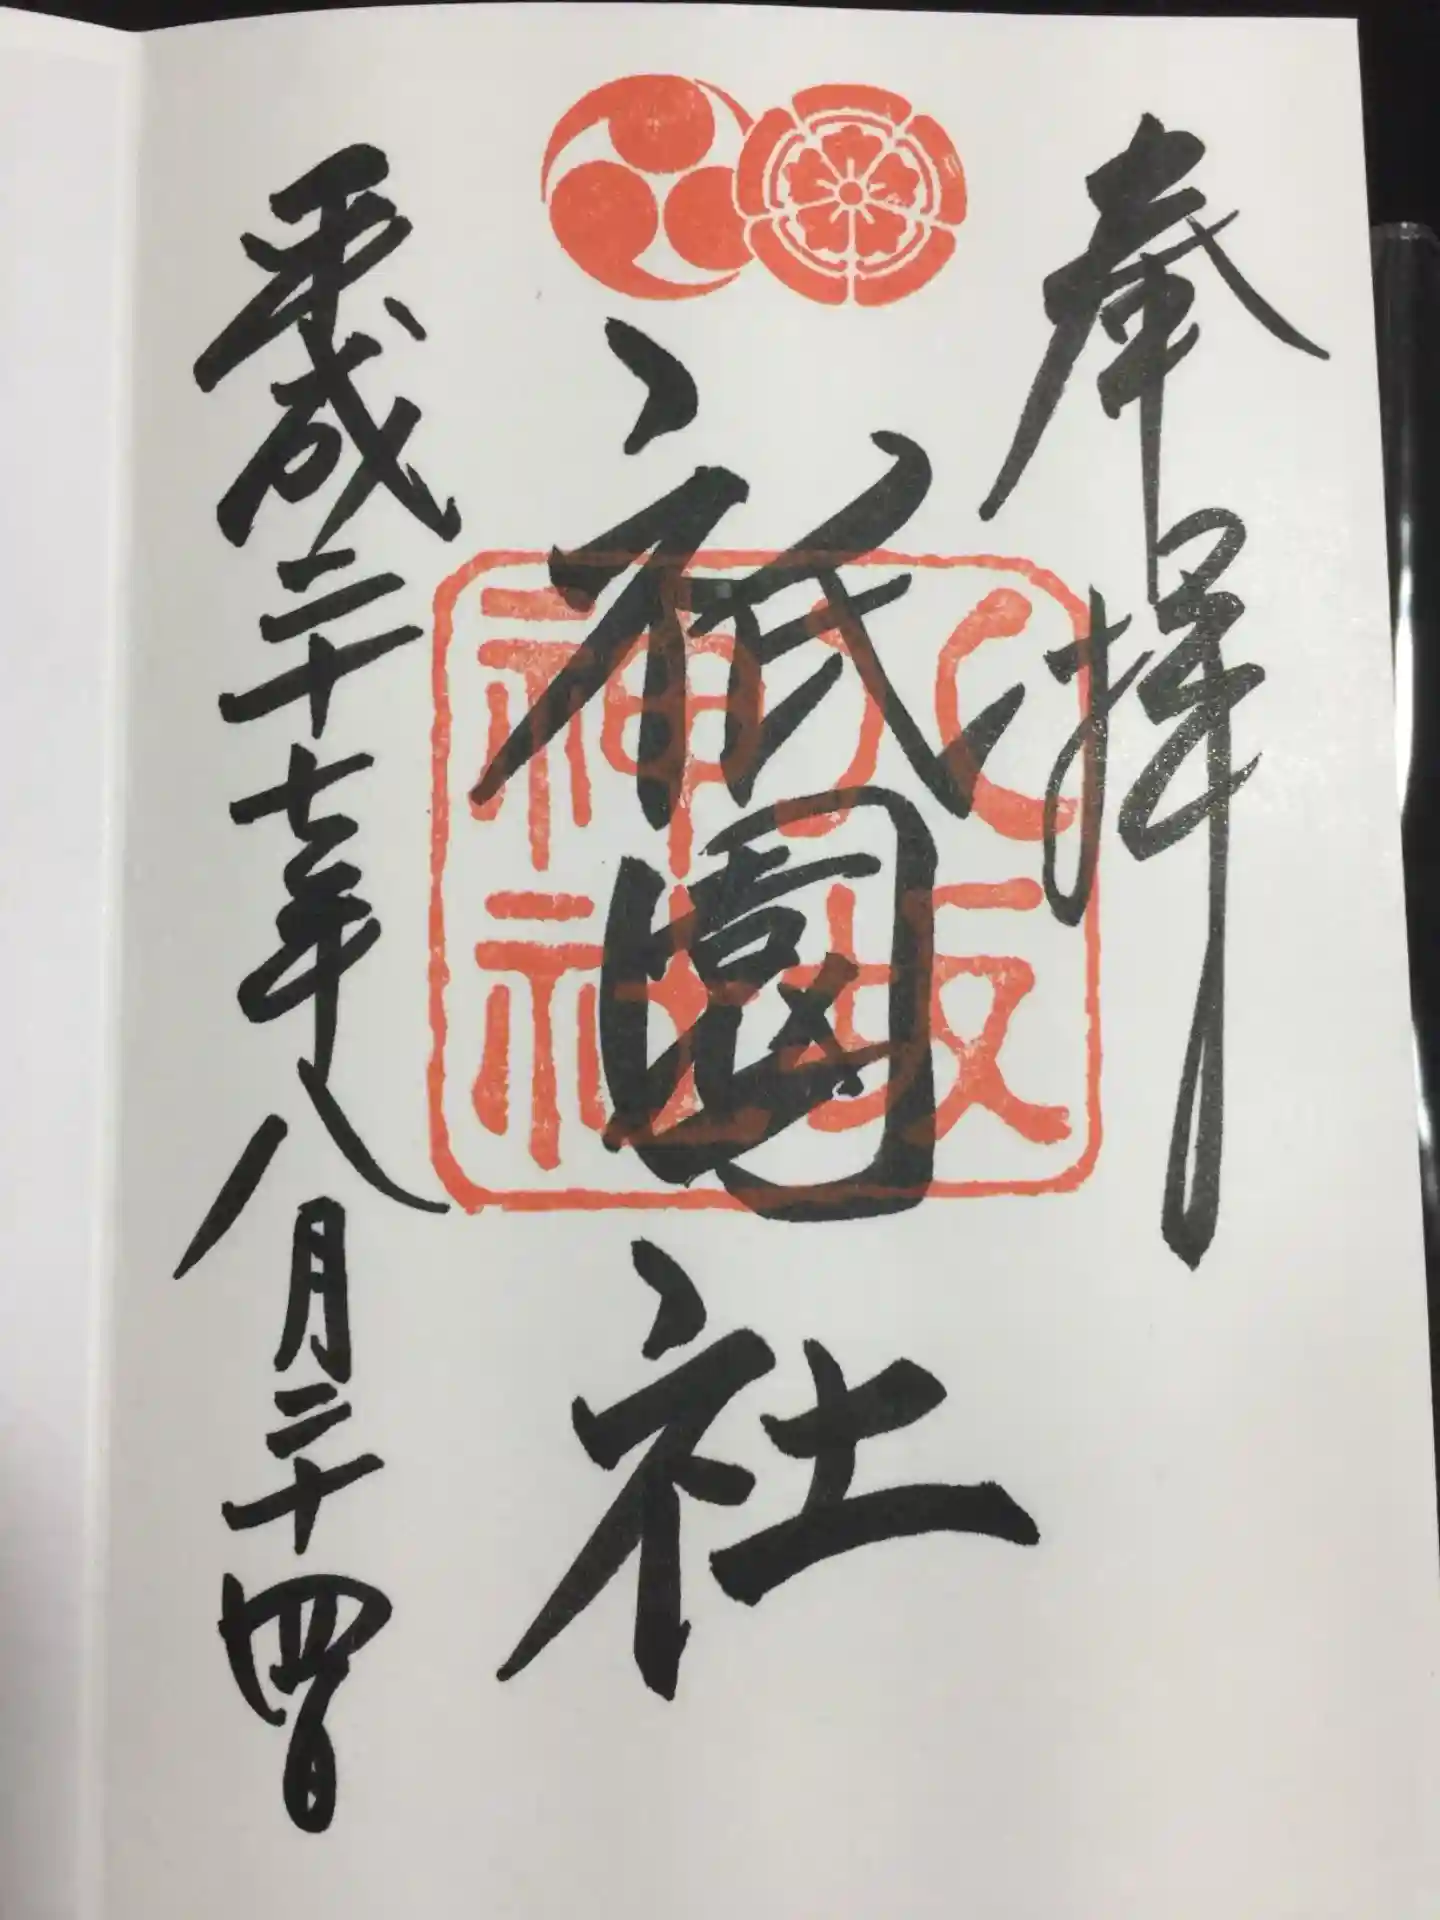 奉拝
祇園社
八坂
神社
平成二十七年八月二十四日